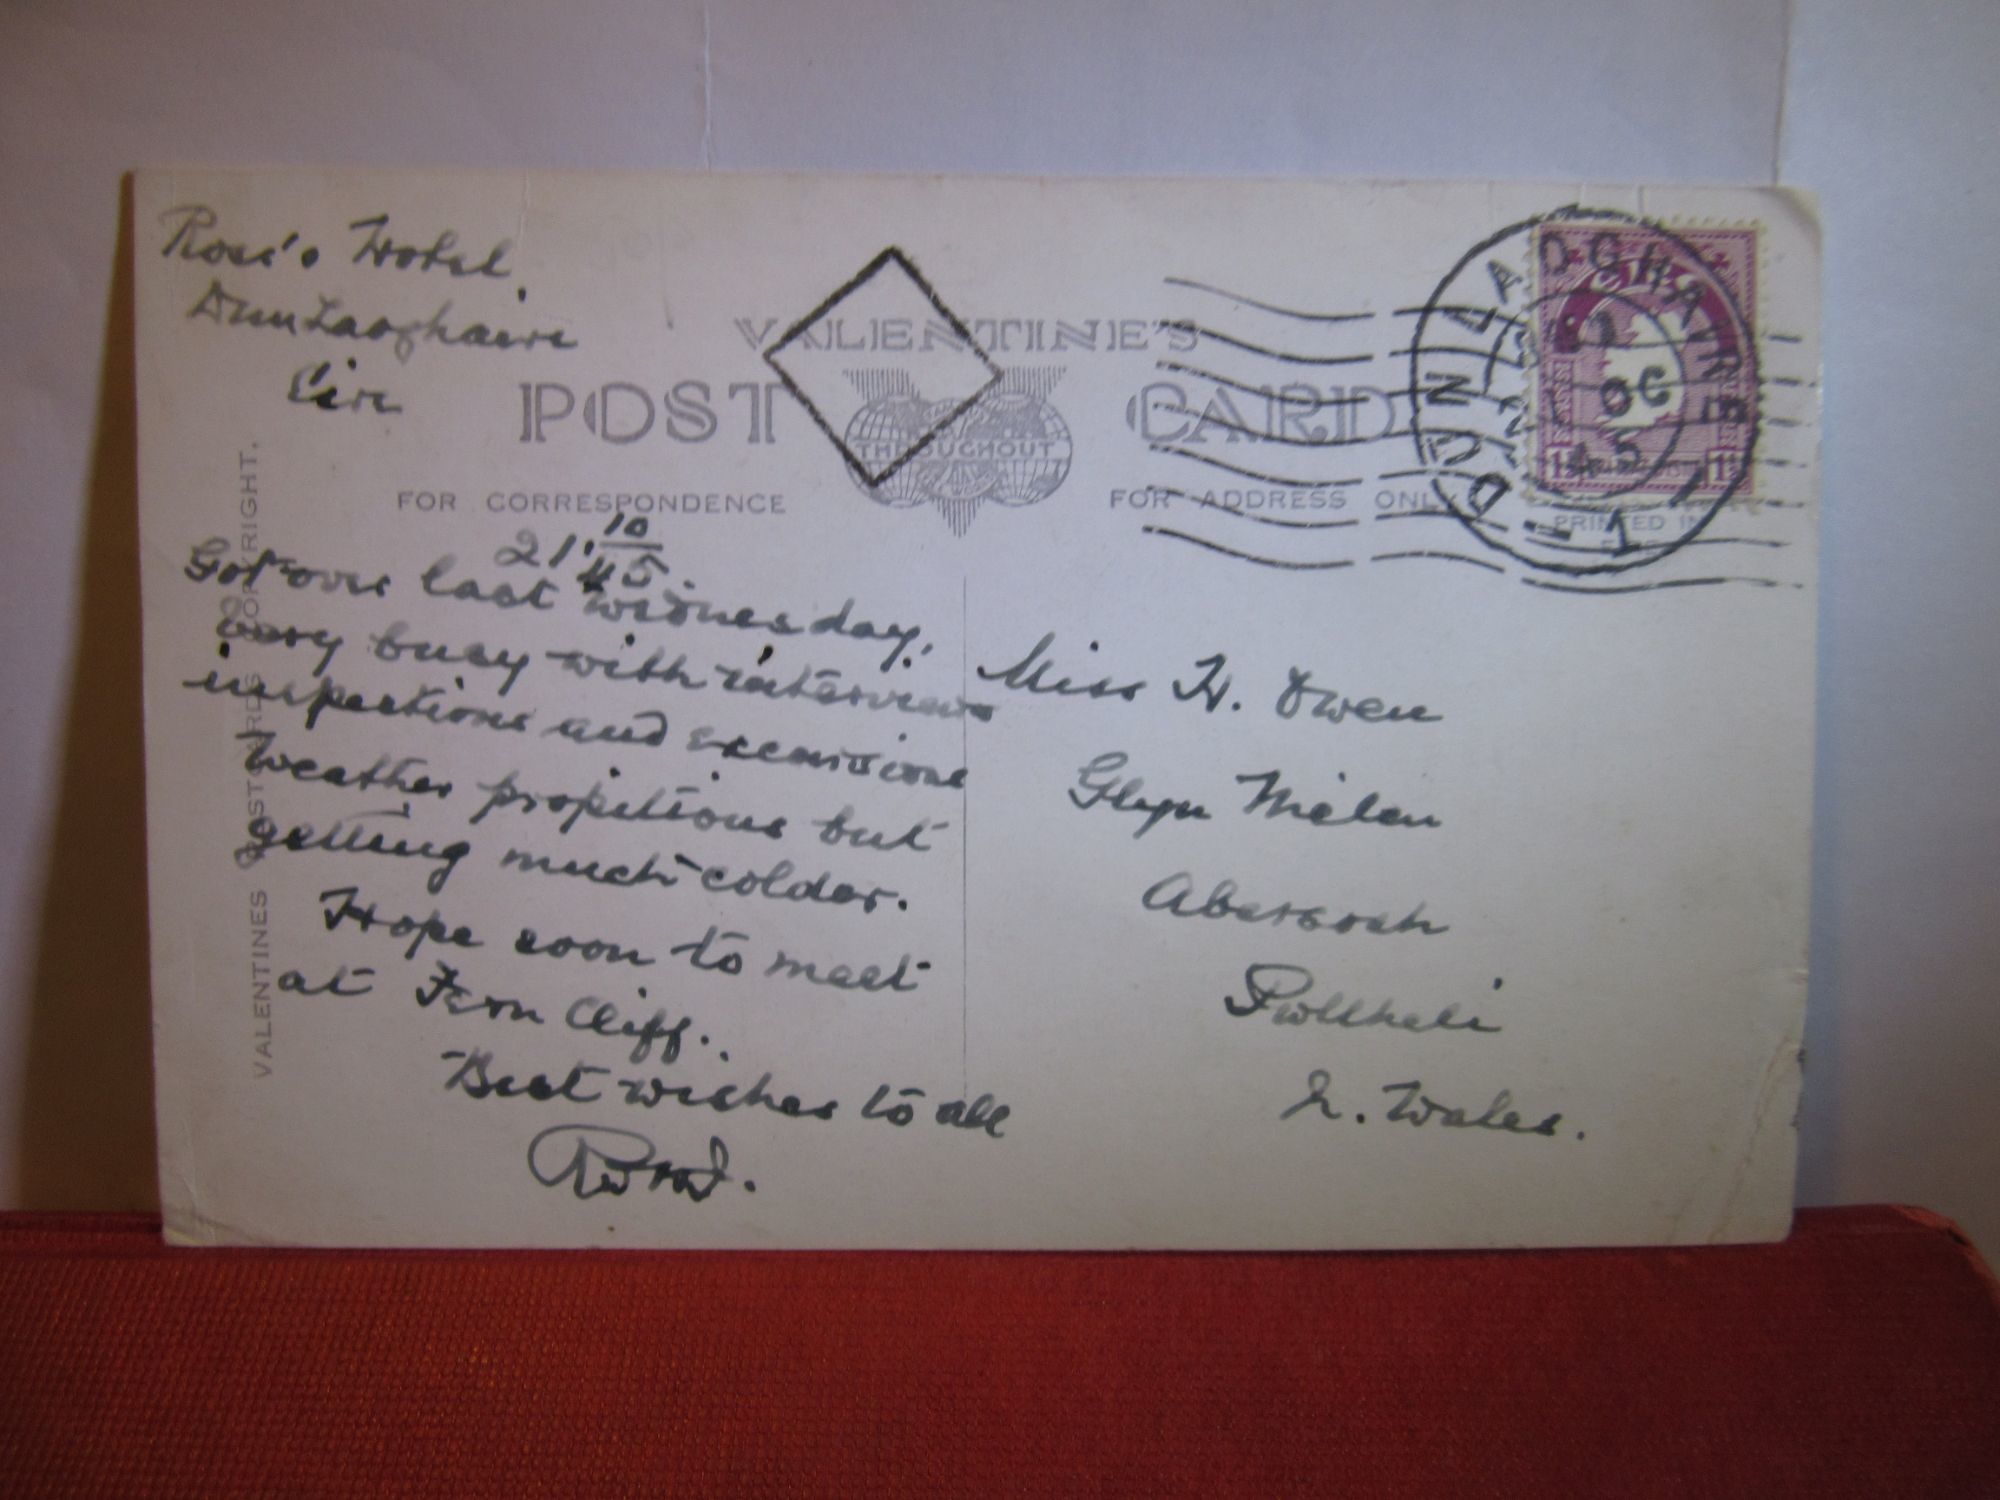 Ross's Hotel,
Dun Laoghaire
Eire
VALENTINE'S
POST CARD
THROUGHOUT
FOR CORRESPONDENCE
FOR ADDRESS ONLY
PRINTED IN
DÚN LAOGHAIRE
21. 10/45.
Got over last Wednesday.
Very busy with interviews
inspections and excursions
Weather propitious but
getting much colder.
Hope soon to meet
at Fern Cliff.
Best wishes to all
Miss H. Owen
Glyn
Abersoch
Pwllheli
N. Wales.
VALENTINES POSTCARDS COPYRIGHT.